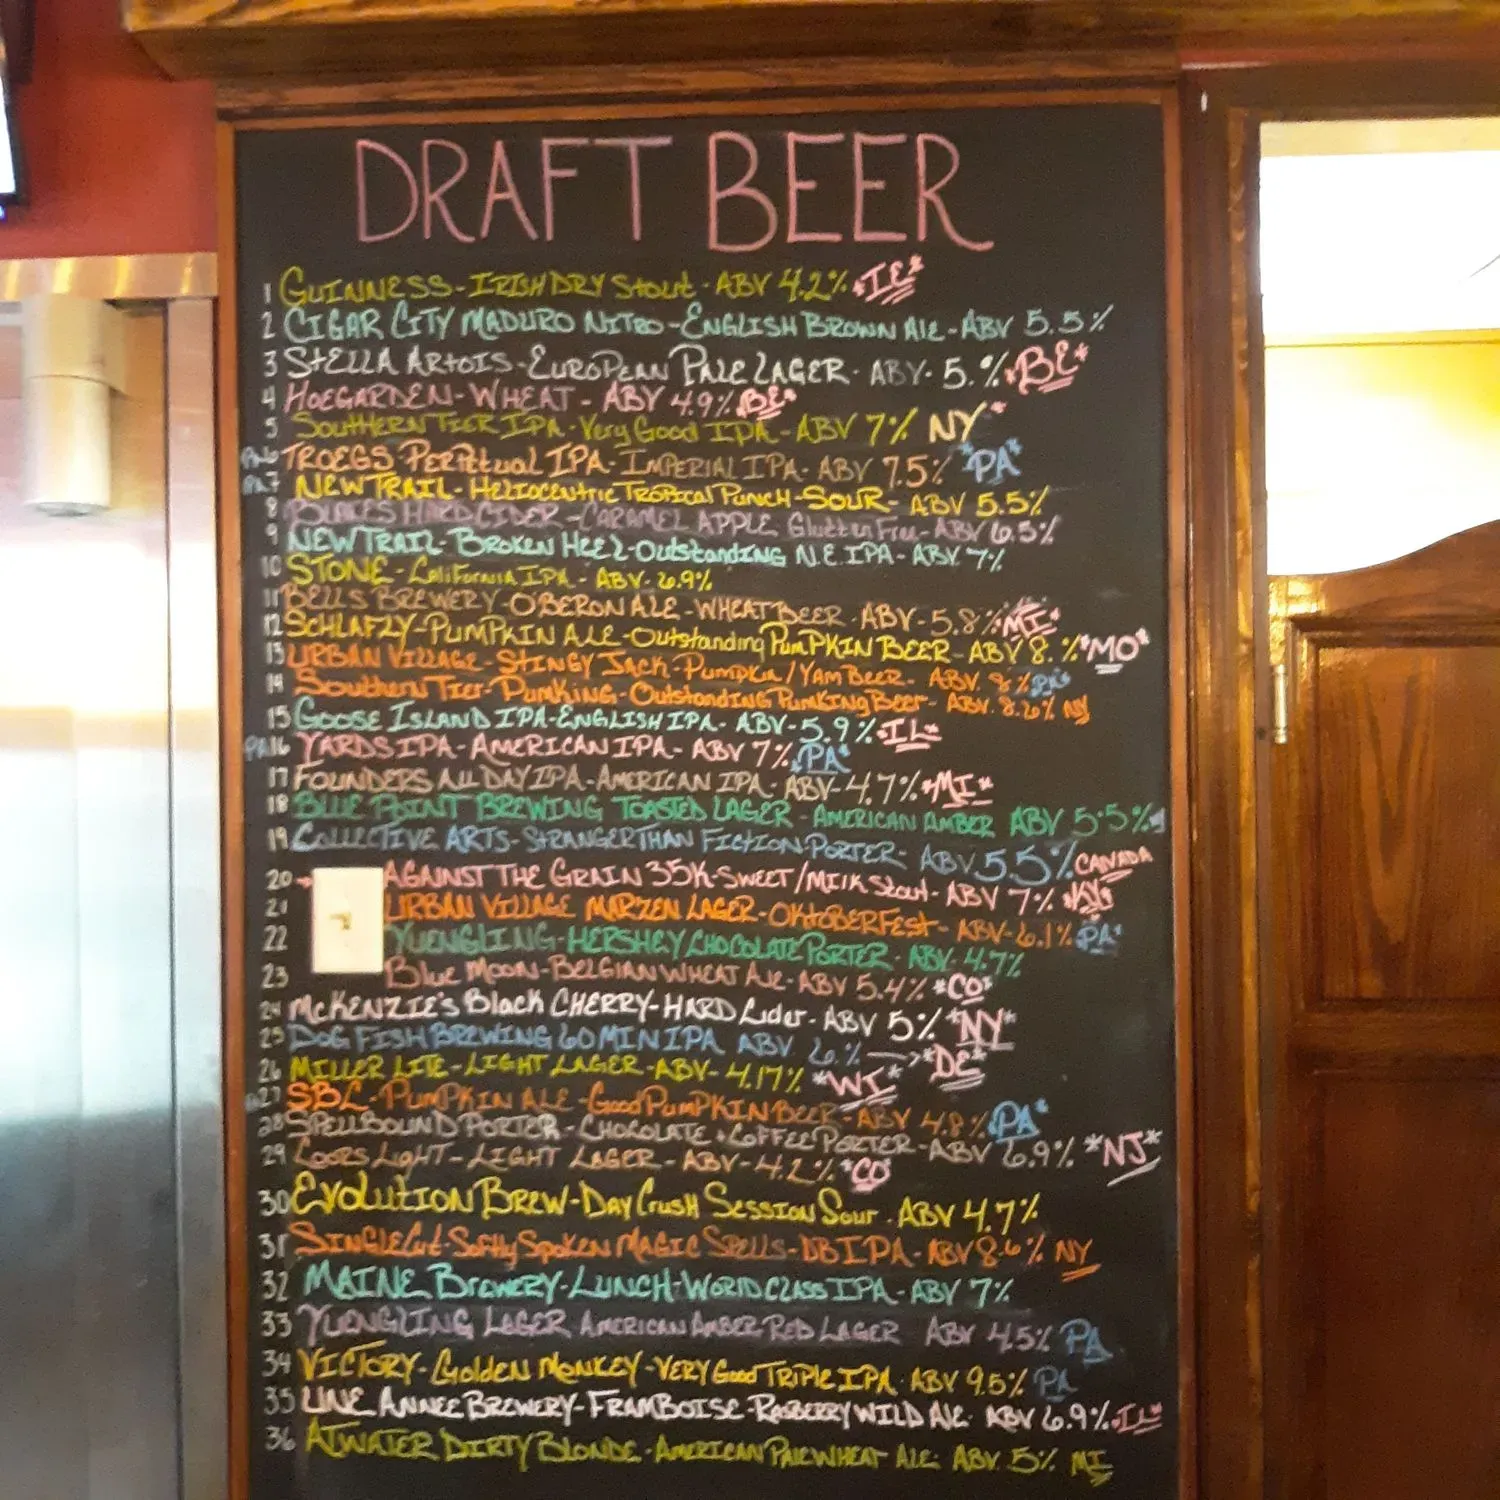 DRAFT BEER
1 GUINNESS - IRISH DRY Stout - ABV 4.2% *IE*
2 CIGAR CITY MADURO NITRO - ENGLISH BROWN ALE - ABV 5.5%
3 StELLA ARtOIS - EUROPEAN PALE LAGER - ABV - 5.% *BE*
4 HOEGARDEN - WHEAT - ABV 4.9% *BE*
5 SOUTHERN TIER IPA - Very Good IPA - ABV 7% NY*
PA 6 TROEGS PERPETUAL IPA - IMPERIAL IPA - ABV 7.5% *PA*
PA 7 NEW TRAIL - HELIOCENTRIC TROPICAL PUNCH - SOUR - ABV 5.5%
8 BLAKES HARD CIDER - CARAMEL APPLE Glutten Free - ABV 6.5%
9 NEW TRAIL - BROKEN HEEL - Outstanding N.E. IPA - ABV 7%
10 STONE - California IPA - ABV - 6.9%
11 BELLS BREWERY - O'BERON ALE - WHEAT BEER - ABV - 5.8% *MI*
12 SCHLAFLY - PUMPKIN ALE - Outstanding PUMPKIN BEER - ABV 8.% *MO*
13 URBAN VILLAGE - STINGY JACK - PUMPKIN / YAM BEER - ABV. 8% PA*
14 SOUTHERN TIER - PUMKING - OUTSTANDING PUMKING BEER - ABV. 8.6% NY
15 GOOSE ISLAND IPA - ENGLISH IPA - ABV - 5.9% *IL*
PA 16 YARDS IPA - AMERICAN IPA - ABV 7% *PA*
17 FOUNDERS ALL DAY IPA - AMERICAN IPA - ABV - 4.7% *MI*
18 BLUE POINT BREWING TOASTED LAGER - AMERICAN AMBER ABV 5.5%
19 COLLECTIVE ARTS - STRANGER THAN FICTION - PORTER - ABV 5.5% CANADA
20 AGAINST THE GRAIN 35K - SWEET / MILK Stout - ABV 7% *KY*
21 URBAN VILLAGE MARZEN LAGER - OKTOBERFEST - ABV - 6.1% *PA*
22 YUENGLING - HERSHEY CHOCOLATE PORTER - ABV - 4.7%
23 BLUE MOON - BELGIAN WHEAT ALE - ABV 5.4% *CO*
24 MCKENZIE'S Black CHERRY - HARD Cider - ABV 5% *NY*
25 DOG FISH BREWING 60 MIN IPA ABV 6.% → *DE*
26 MILLER LITE - LIGHT LAGER - ABV - 4.17% *WI*
27 SBC - PUMPKIN ALE - Good PUMPKIN BEER - ABV 4.8% *PA*
28 SPELLBOUND PORTER - CHOCOLATE + COFFEE PORTER - ABV 6.9% *NJ*
29 COORS LIGHT - LIGHT LAGER - ABV - 4.2% *CO
30 EVOLUTION BREW - DAY CRUSH SESSION SOUR - ABV 4.7%
31 SINGLECUT - SOFTLY SPOKEN MAGIC SPELLS - DB IPA - ABV 8.6% NY
32 MAINE BREWERY - LUNCH - WORLD CLASS IPA - ABV 7%
33 YUENGLING LAGER AMERICAN AMBER RED LAGER ABV 4.5% PA
34 VICTORY - Golden MONKEY - VERY Good TRIPLE IPA - ABV 9.5% PA
35 LINE ANNEE BREWERY - FRAMBOISE - RASBERRY WILD ALE - ABV 6.9% *IL*
36 ATWATER DIRTY BLONDE - AMERICAN PALE WHEAT ALE - ABV. 5% MI